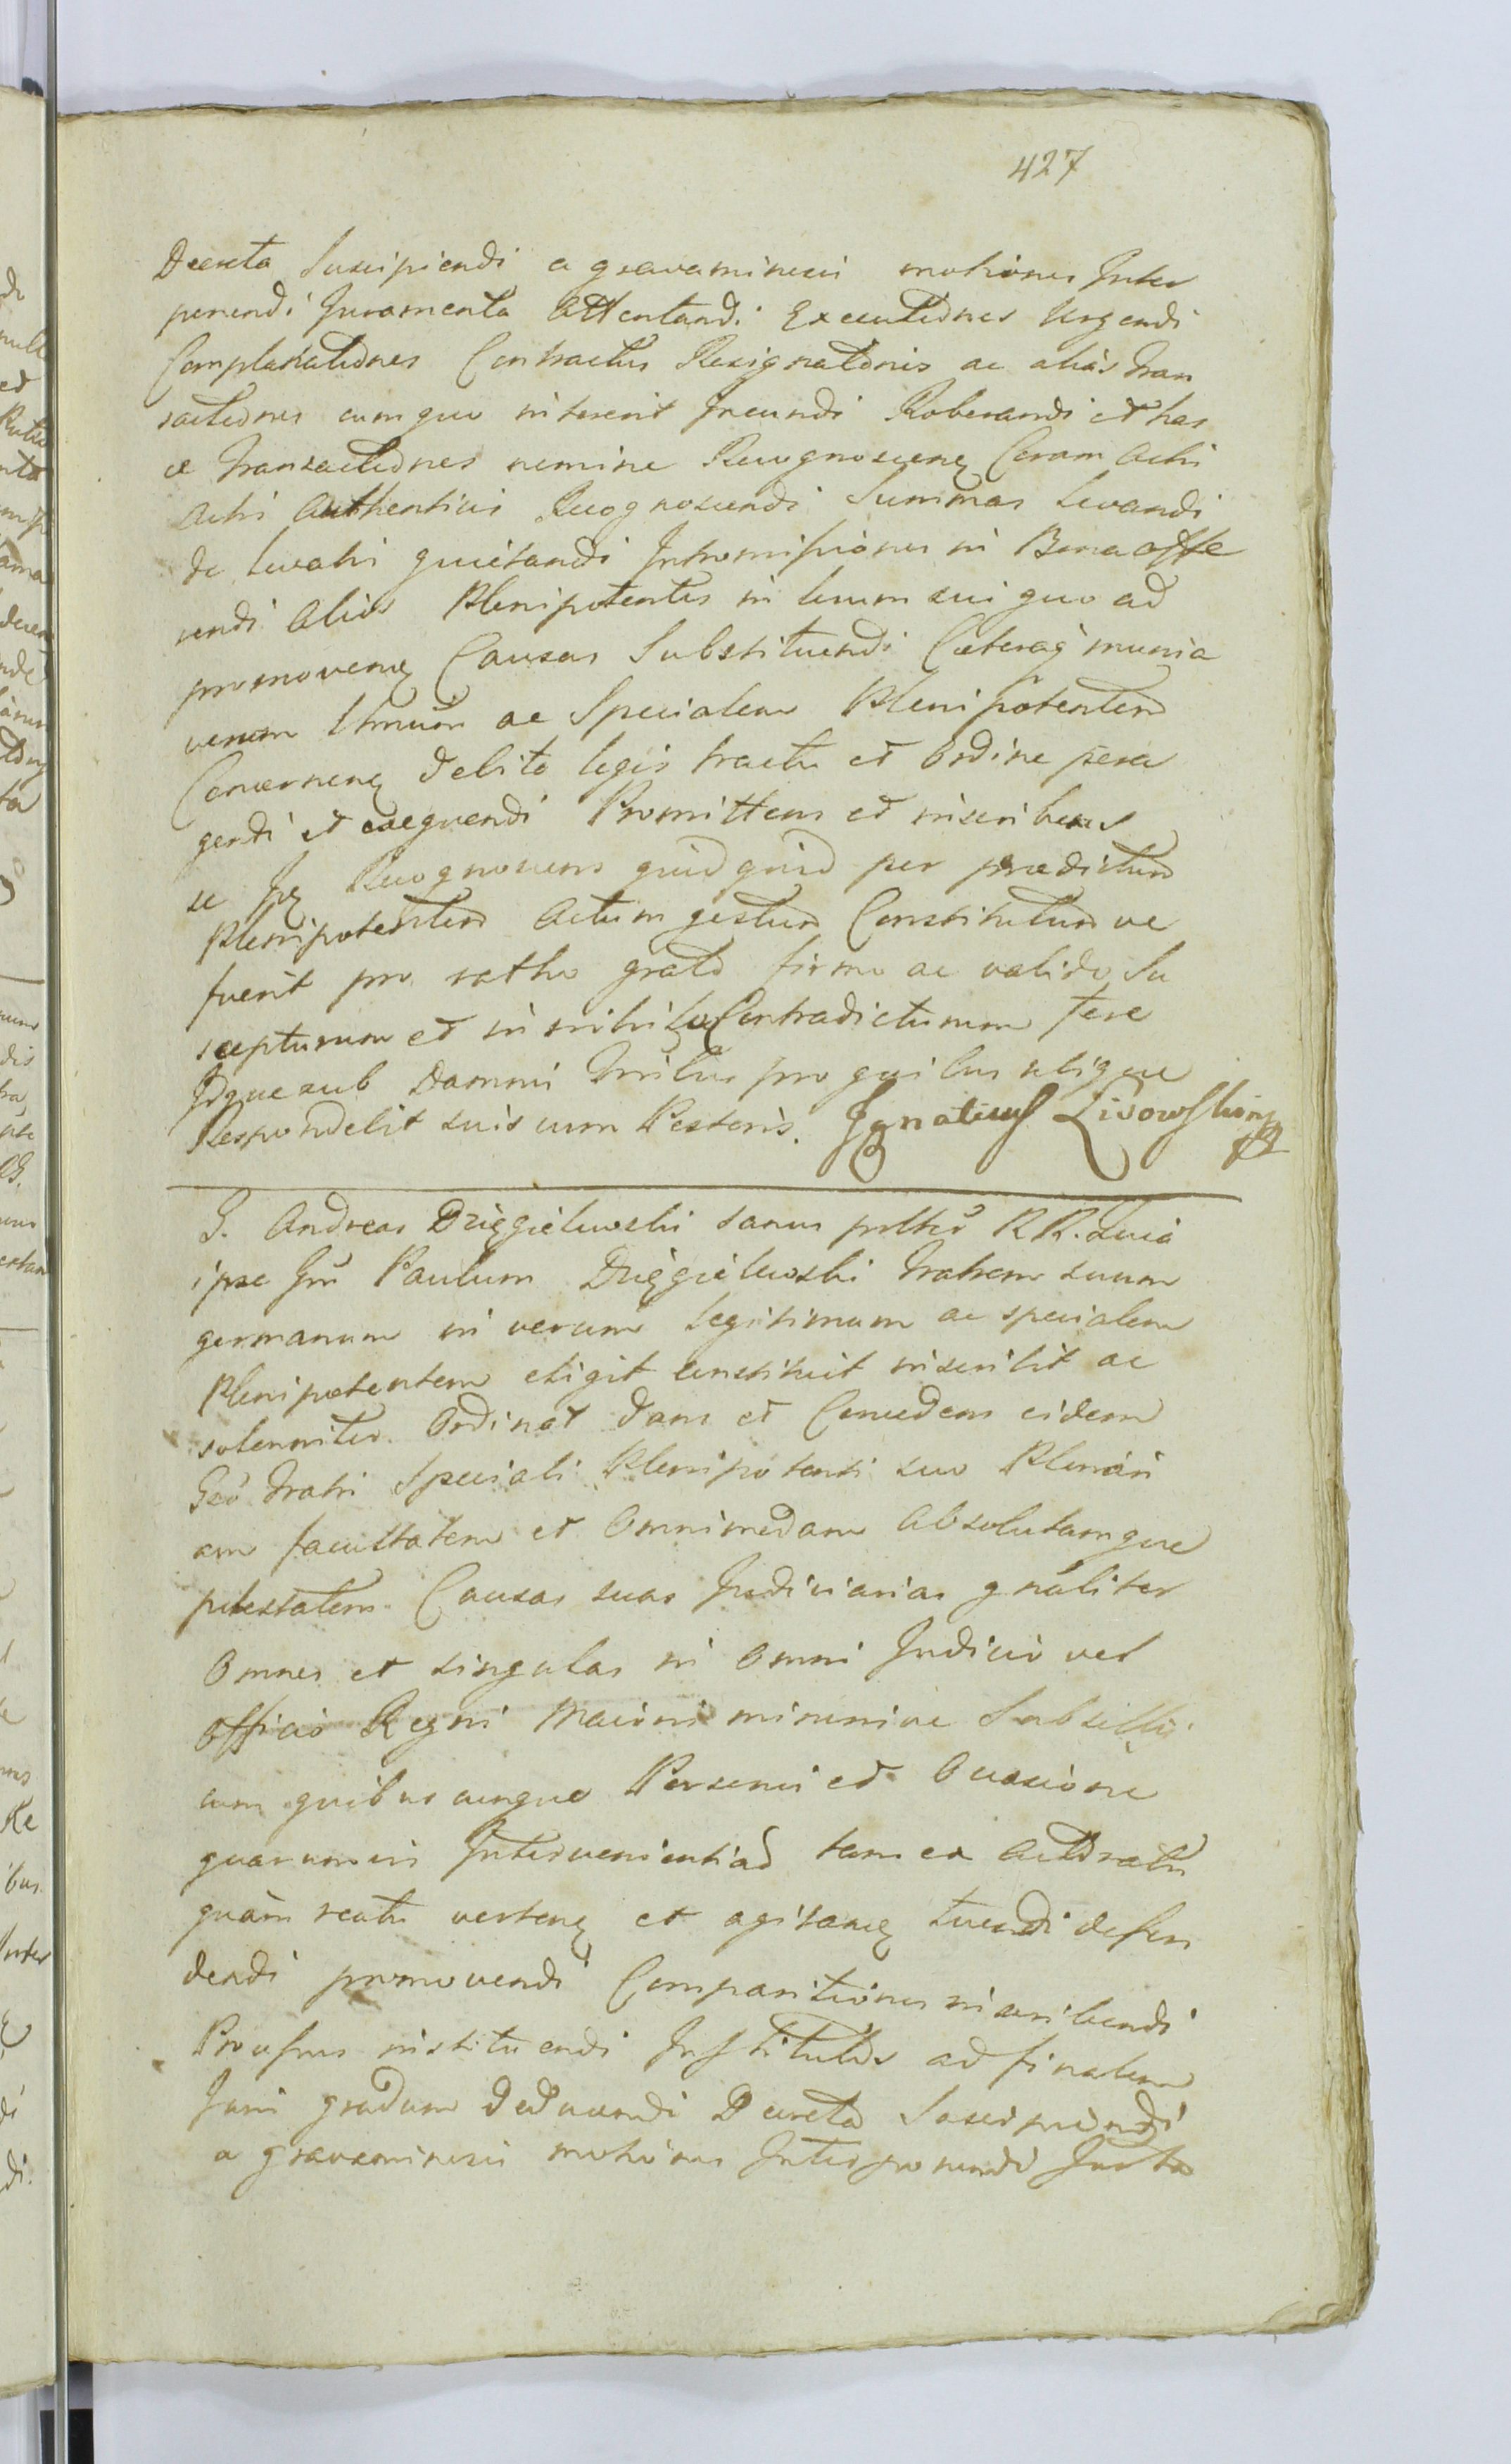 427
Decreta Suscipiendi a gravaminesii motiones Inter
ponendi Juramenta Attentandi Executiones Urgendi
Complanationes Contractus Resignationis ac aliàs tran
sactiones cum quo intererit Ineundi Roborandi et has
ce transactiones nomine Recognoscen Coram Actis
Actis Authenticis Recognoscendi Summas Levandi
de levatis quietandi Intromissiones in Bona offe
rendi Alios Plenipotentes in locum sui quo ad
promoven Causas Substituendi Caeteraq munia
verum Ltmum ac Specialem Plenipotentem
Concernen debito legis tractu et ordine pera
gendi et exequendi Promittens et inscribens
se Recognoscens quidquid per praedictum
Plenipotentem Actum gestum Constitutum ve
fuerit pro ratho grato firmo ac valido Su
scepturum et in nihilo Contradicturum fere
Idque sub Damni tribus pro quibus utique
Respondebit suis cum Posteris. Ignatius
G. Andreas Dzięgielewski sanus RR.
ipse Gnm Paulum Dzięgielewski fratrem suum
germanum in verum Legitimum ac specialem
Plenipotentem eligit constituit inscribit ac
solenniter Ordinat dans et Concedens eidem
Gso fratri Speciali Plenipotenti suo Plenari
am facultatem et Omnimodam Absolutamque
potestatem Causas suas Judiciarias gnaliter
Omnes et singulas in omni Judicio vel
officio Regni Maioris minorisve Subsellij
cum quibuscunque Personis et Occasione
quarumvis Intervenientiad tam ex Actoratu
quàm reatu verten et agitan tuendi defen
dendi promovendi Comparitiones inscribendi
Processus instituendi Institutos ad finalem
Juris gradum Deducendi Decreta Suscipiendi
a gravaminesii motiones Interponendi Jurta